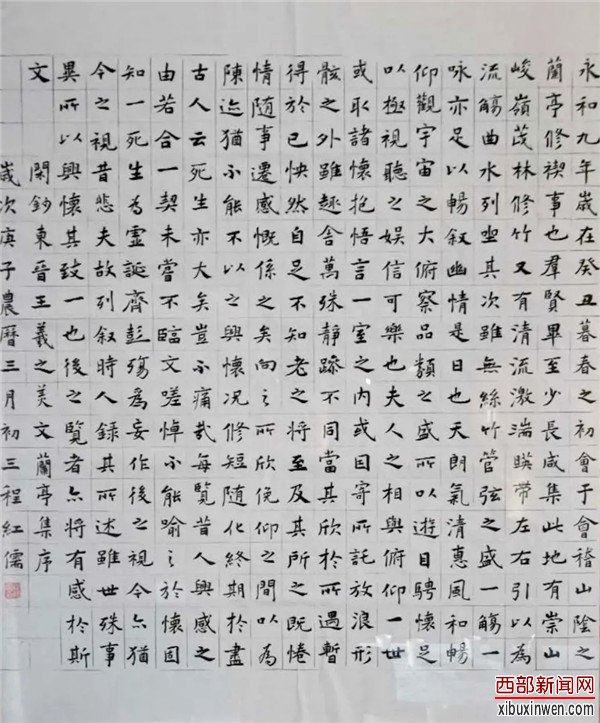 永和九年歲在癸丑暮春之初會于會稽山陰之
蘭亭修禊事也羣賢畢至少長咸集此地有崇山
峻嶺茂林修竹又有清流激湍暎帶左右引以為
流觴曲水列坐其次雖無絲竹管弦之盛一觴一
咏亦足以暢叙幽情是日也天朗氣清惠風和暢
仰觀宇宙之大俯察品類之盛所以遊目騁懷足
以極視聽之娛信可樂也夫人之相與俯仰一世
或取諸懷抱悟言一室之內或因寄所託放浪形
骸之外雖趣舍萬殊靜躁不同當其欣於所遇暫
得於己快然自足不知老之將至及其所之既惓
情隨事遷感慨係之矣向之所欣俛仰之間以為
陳迹猶不能不以之興懷況修短隨化終期於盡
古人云死生亦大矣豈不痛哉每覽昔人興感之
由若合一契未嘗不臨文嗟悼不能喻之於懷固
知一死生為虛誕齊彭殤為妄作後之視今亦猶
今之視昔悲夫故列叙時人錄其所述雖世殊事
異所以興懷其致一也後之覽者亦將有感於斯
文 閑鈔東晉王羲之美文蘭亭集序
歲次庚子農曆三月初三程紅儒
西部新闻网
xibuxinwen.com